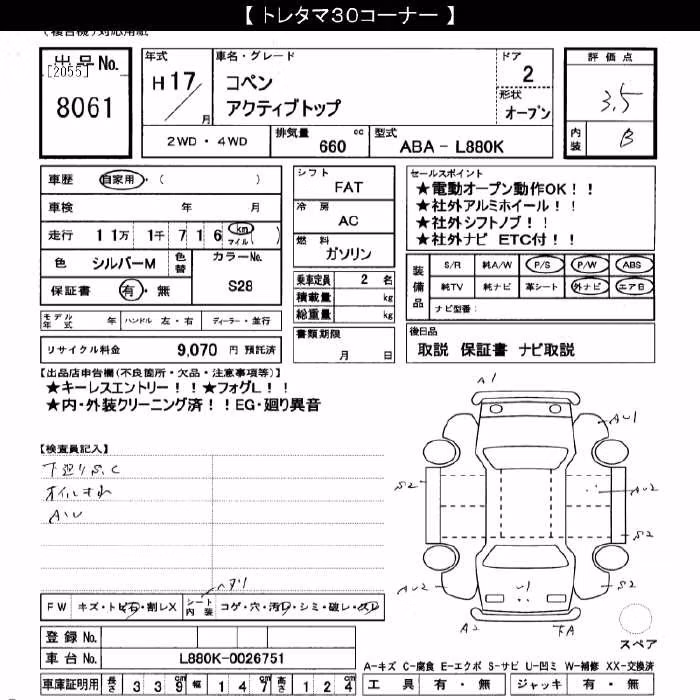 【 トレタマ30コーナー 】
(複合機)対応用紙
出品No.
[2055]
8061
年式
H 17 / 月
車名・グレード
コペン
アクティブトップ
ドア
2
形状
オープン
2WD・4WD
排気量 660 cc
型式 ABA - L880K
評価点
3.5
内装 B
車歴 自家用・( )
車検 年 月
走行 11万 1千 716 km マイル ( )
色 シルバーM 色替 カラーNo. S28
保証書 有・無
モデル年式 年 ハンドル 左・右 ディーラー・並行
リサイクル料金 9,070 円 預託済
シフト
FAT
冷房
AC
燃料
ガソリン
乗車定員 2 名
積載量 kg
総重量 kg
書類期限
月 日
セールスポイント
★電動オープン動作OK!!
★社外アルミホイール!!
★社外シフトノブ!!
★社外ナビ ETC付!!
装備品 S/R 純A/W P/S P/W ABS
純TV 純ナビ 革シート 外ナビ エアB
ナビ型番:
後日品
取説 保証書 ナビ取説
【出品店申告欄(不良箇所・欠品・注意事項等)】
★キーレスエントリー!!★フォグL!!
★内・外装クリーニング済!!EG・廻り異音
【検査員記入】
下廻りS.C
A1
AU1
S2
AU2
S2
AU2
U1
S2
A2
下A
スペア
FW キズ・トビ石・割レX シート内装 コゲ・穴・汚レ・シミ・破レ・スレ
ヘタリ
登録No.
車台No. L880K-0026751
車庫証明用 長さ 339cm 幅 147cm 高さ 124cm
A-キズ C-腐食 E-エクボ S-サビ U-凹ミ W-補修 XX-交換済
工具 有・無 ジャッキ 有・無